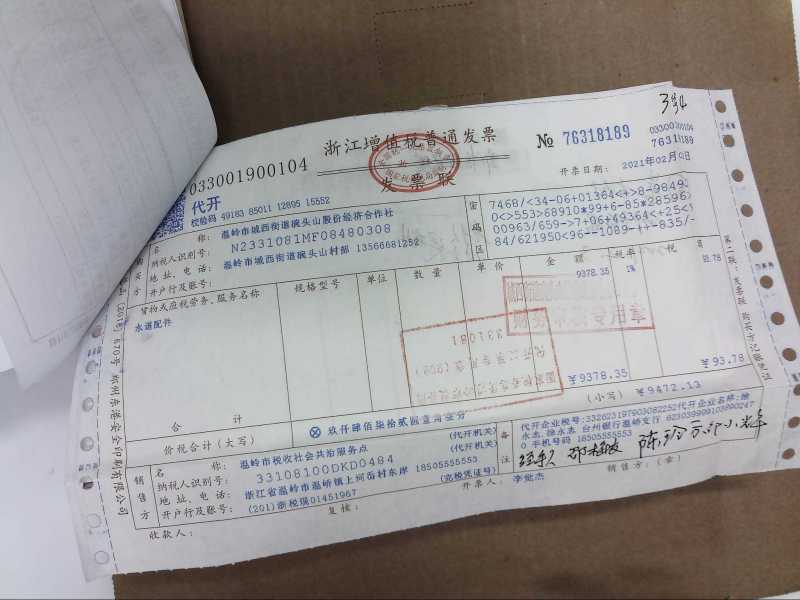 浙江增值税普通发票
发票联
033001900104
代开
校验码 49183 85011 12895 15552
№ 76318189
033001900104
76318189
开票日期: 2021年02月
购买方
名称: 温岭市城西街道碗头山股份经济合作社
纳税人识别号: N2331081MF08480308
地址、电话: 温岭市城西街道碗头山村部 13566681252
开户行及账号:
密码区
7468/<34-06+01364<+>8-9849
0<>553>68910*99+6-85*28596
00963/659->7+06+49364<+25<
84/621950<96--1089-++-835/-
货物或应税劳务、服务名称
规格型号
单位
数量
单价
金额
税率
税额
水道配件
9378.35
1%
93.78
331081
合计
¥9378.35
¥93.78
价税合计(大写)
⊗ 玖仟肆佰柒拾贰圆壹角叁分
(小写) ¥9472.13
销售方
名称: 温岭市税收社会共治服务点
(代开机关)
纳税人识别号: 33108100DKD0484
(代开机关)
地址、电话: 浙江省温岭市温峤镇上珂岙村东岸 18505555553
开户行及账号: (201)浙税琪01451967
(完税凭证号)
备注
代开企业税号:332623197903082252代开企业名称:徐
永志 徐永志 台州银行温峤支行 623039999103890247
0 手机号码 18505555553
经手人
收款人:
复核:
开票人: 李能杰
销售方:(章)
第二联:发票联 购买方记账凭证